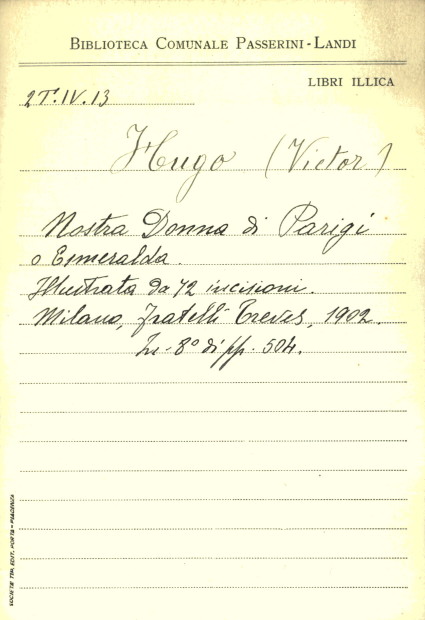 BIBLIOTECA COMUNALE PASSERINI-LANDI
LIBRI ILLICA
2T.IV.13
Hugo (Victor)
Nostra Donna di Parigi
o Esmeralda.
Illustrata da 72 incisioni.
Milano, Fratelli Treves, 1902.
In-8° di pp. 504.